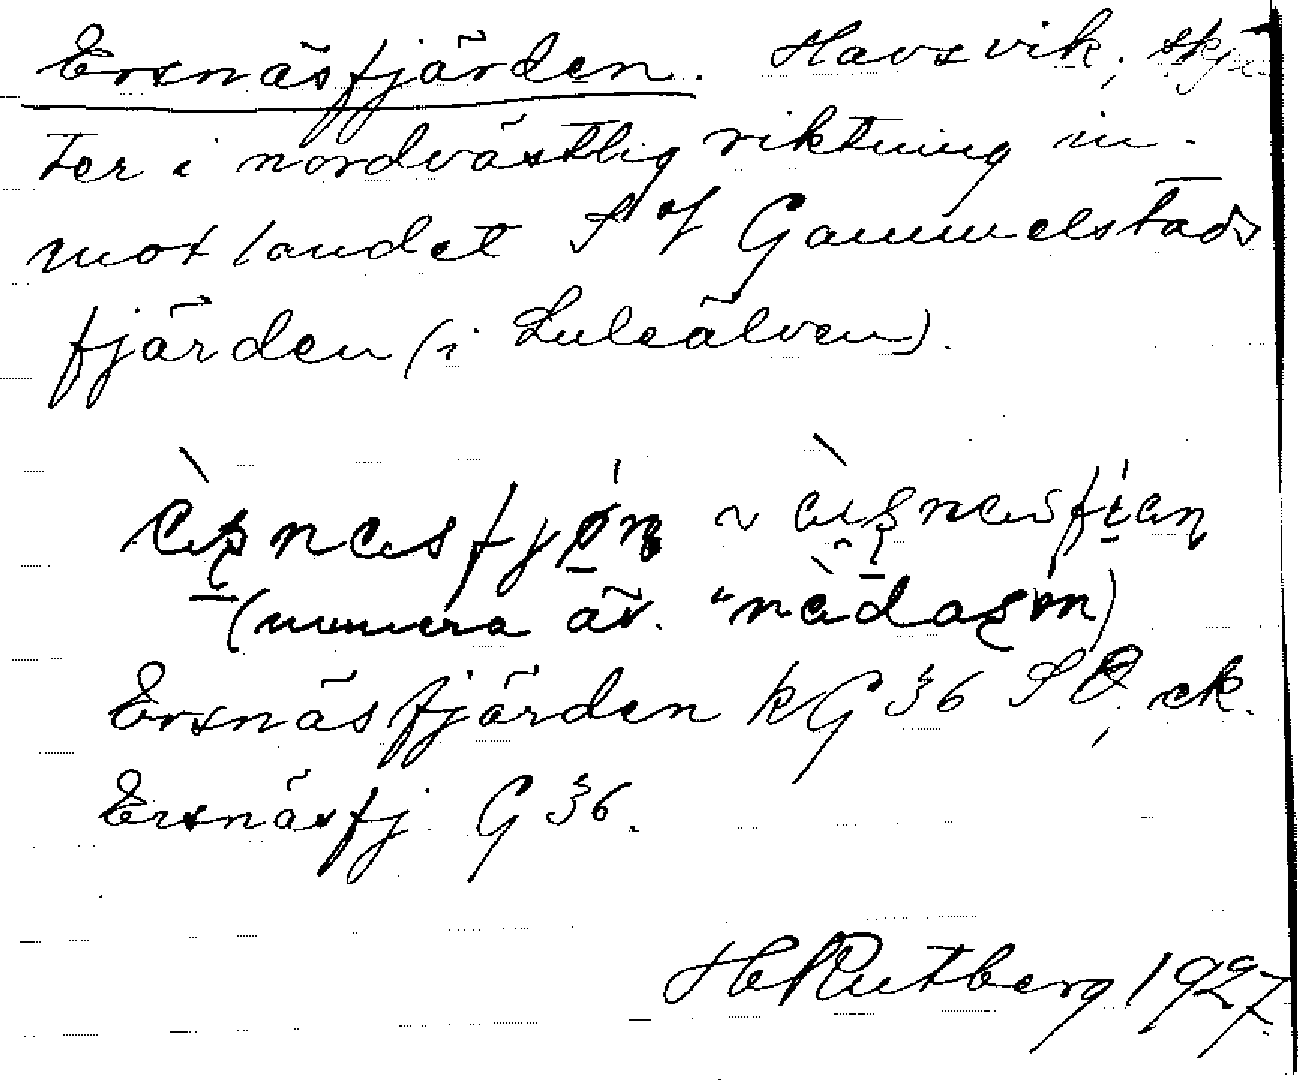 Ersnäsfjärden. Havsvik, skju-
ter i nordvästlig riktning in-
mot landet S of Gammelstads
fjärden (i Luleälven).
(numera äv.
Ersnäsfjärden kG 36 SO, ek.
Ersnäsfj. G 36.
H Rutberg 1927